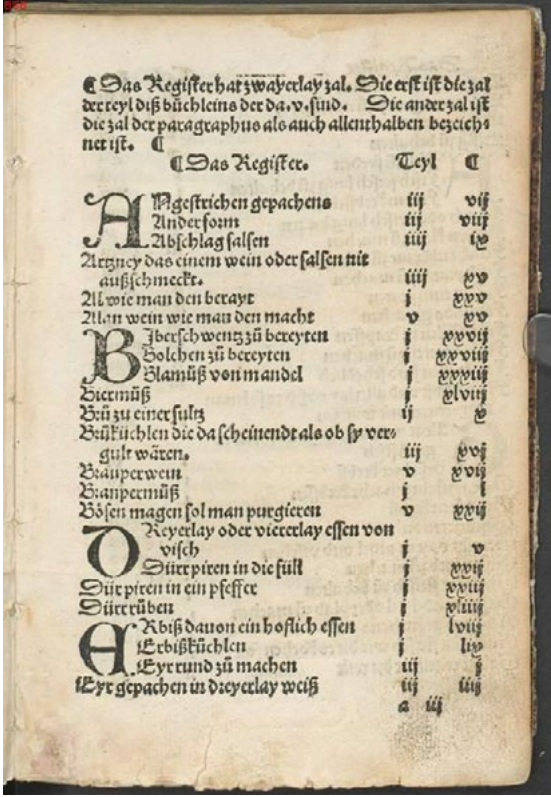 ¶ Das Register hat zwayerlay zal. Die erst ist die zal
der teyl diß büchleins der da .v. sind. Die ander zal ist
die zal der paragraphus als auch allenthalben bezeich⸗
net ist. ¶
¶ Das Register. Teyl ¶
ANgestrichen gepachens iij vij
Ander form iij viij
Abschlag salsen iiij ix
Artzney das einem wein oder salsen nit
außschmeckt. iiij xv
Al wie man den berayt j xxv
Alan wein wie man den macht v xv
BJberschwentz zů bereyten j xxvij
Bolchen zů bereyten j xxviij
Blamůß von mandel j xxxiij
Biermůß j xlviij
Brů zu einer sultz ij x
Brůkůchlen die da scheinendt als ob sy ver⸗
gult wåren. iij xvj
Brauperwein v xvij
Branpermůß j l
Bösen magen sol man purgieren v xxij
DReyerlay oder viererlay essen von
visch j v
Dürr piren in die füll j xxij
Dür piren in ein pfeffer j xxiij
Dürr růben j xliiij
ERbiß dauon ein hoflich essen j lviij
Erbißkůchlen j lix
Eyr rund zů machen iij j
Eyr gepachen in dreyerlay weiß iij iiij
a iij